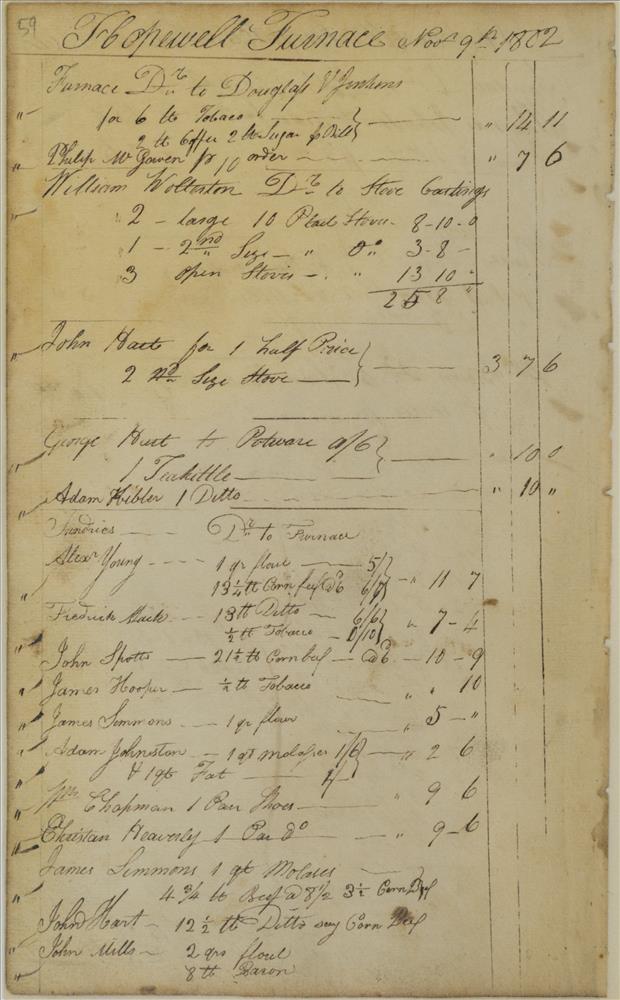 59
Hopewell Furnace Novr 9th 1802
Furnace Dr to Douglass & Jenkins
for 6 lb Tobaco — " 14 11
2 lb Coffee 2 lb Sugar
" Philip Mc Gowen pr order — " 7 6
William Wolterton Dr to Stove Castings
" 2 - large 10 Plad Stoves - 8-10-0
1 - 2nd Size - " Do " 3-8-
3 open Stoves - " 13 10 "
25 8 "
" John Hart for 1 half Price
2 nd Size Stove — 3 7 6
George Hart to Potware a/6
" 1 Teakittle — " 10 0
" Adam Hibler 1 Ditto — " 10 "
Sundries — Dr to Furnace
Alexr Young - - - - 1 qr flour — 5/
" 13 1/4 lb Corn beef @ 6 6/7 - " 11 7
Fredrick — 13 lb Ditto — 6/6
" 1/2 lb Tobacco - 0/10 " 7-4
" John Spotts — 21 1/2 lb Corn beef — @ 6 - 10 - 9
" James Hooper — 1/2 lb Tobacco — " " 10
" James Simmons — 1 qr flour — " 5 - "
" Adam Johnston — 1 qt molasses 1/6 — " 2 6
" & 1 qt Fat — 1/-
" Wm Chapman 1 Pair Shoes — " 9 6
" Christan Heaverly 1 Par do — " 9-6
James Simmons 1 qt Molases —
" 4 3/4 lb Beef @ 8 1/2 3 1/2 Corn Beef
" John Hart - 12 1/2 lb Ditto say Corn Beef
" John Mills - 2 qrs flour
8 lb Bacon